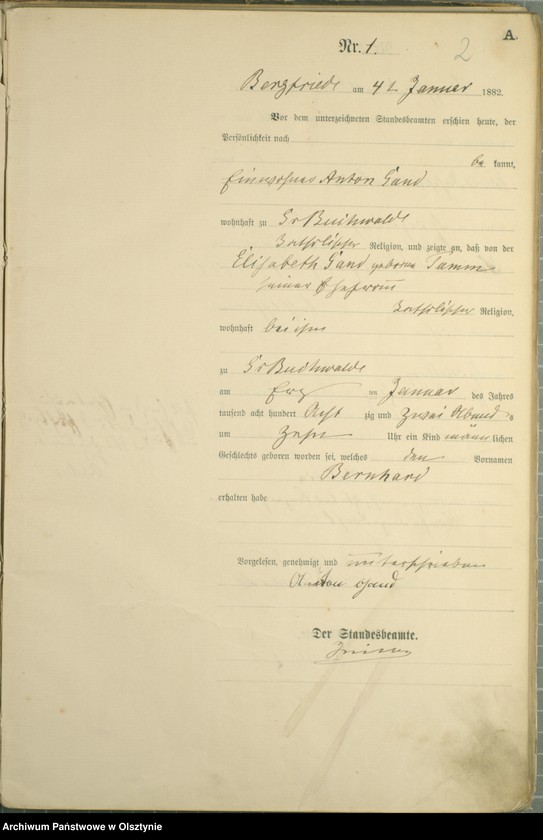 A.
Nr. 1. 2
Bergfriede am 4 t Januar 1882.
Vor dem unterzeichneten Standesbeamten erschien heute, der
Persönlichkeit nach
be kannt,
Einwohner Anton Gand
wohnhaft zu Gr Buchwalde
katholischer Religion, und zeigte an, daß von der
Elisabeth Gand geborne Tamm
seiner Ehefrau
katholischer Religion,
wohnhaft bei ihm
zu Gr Buchwalde
am ten Januar des Jahres
tausend acht hundert Acht zig und zwei Abends
um zehn Uhr ein Kind männ lichen
Geschlechts geboren worden sei, welches den Vornamen
Bernhard
erhalten habe
Vorgelesen, genehmigt und unterschrieben
Anton Gand
Der Standesbeamte.
Archiwum Państwowe w Olsztynie